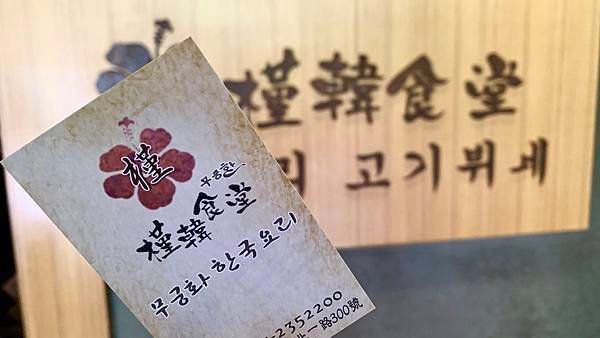 槿韓食堂
고기뷔페
槿
무궁화
槿韓食堂
무궁화 한국요리
-2352200
一路300號